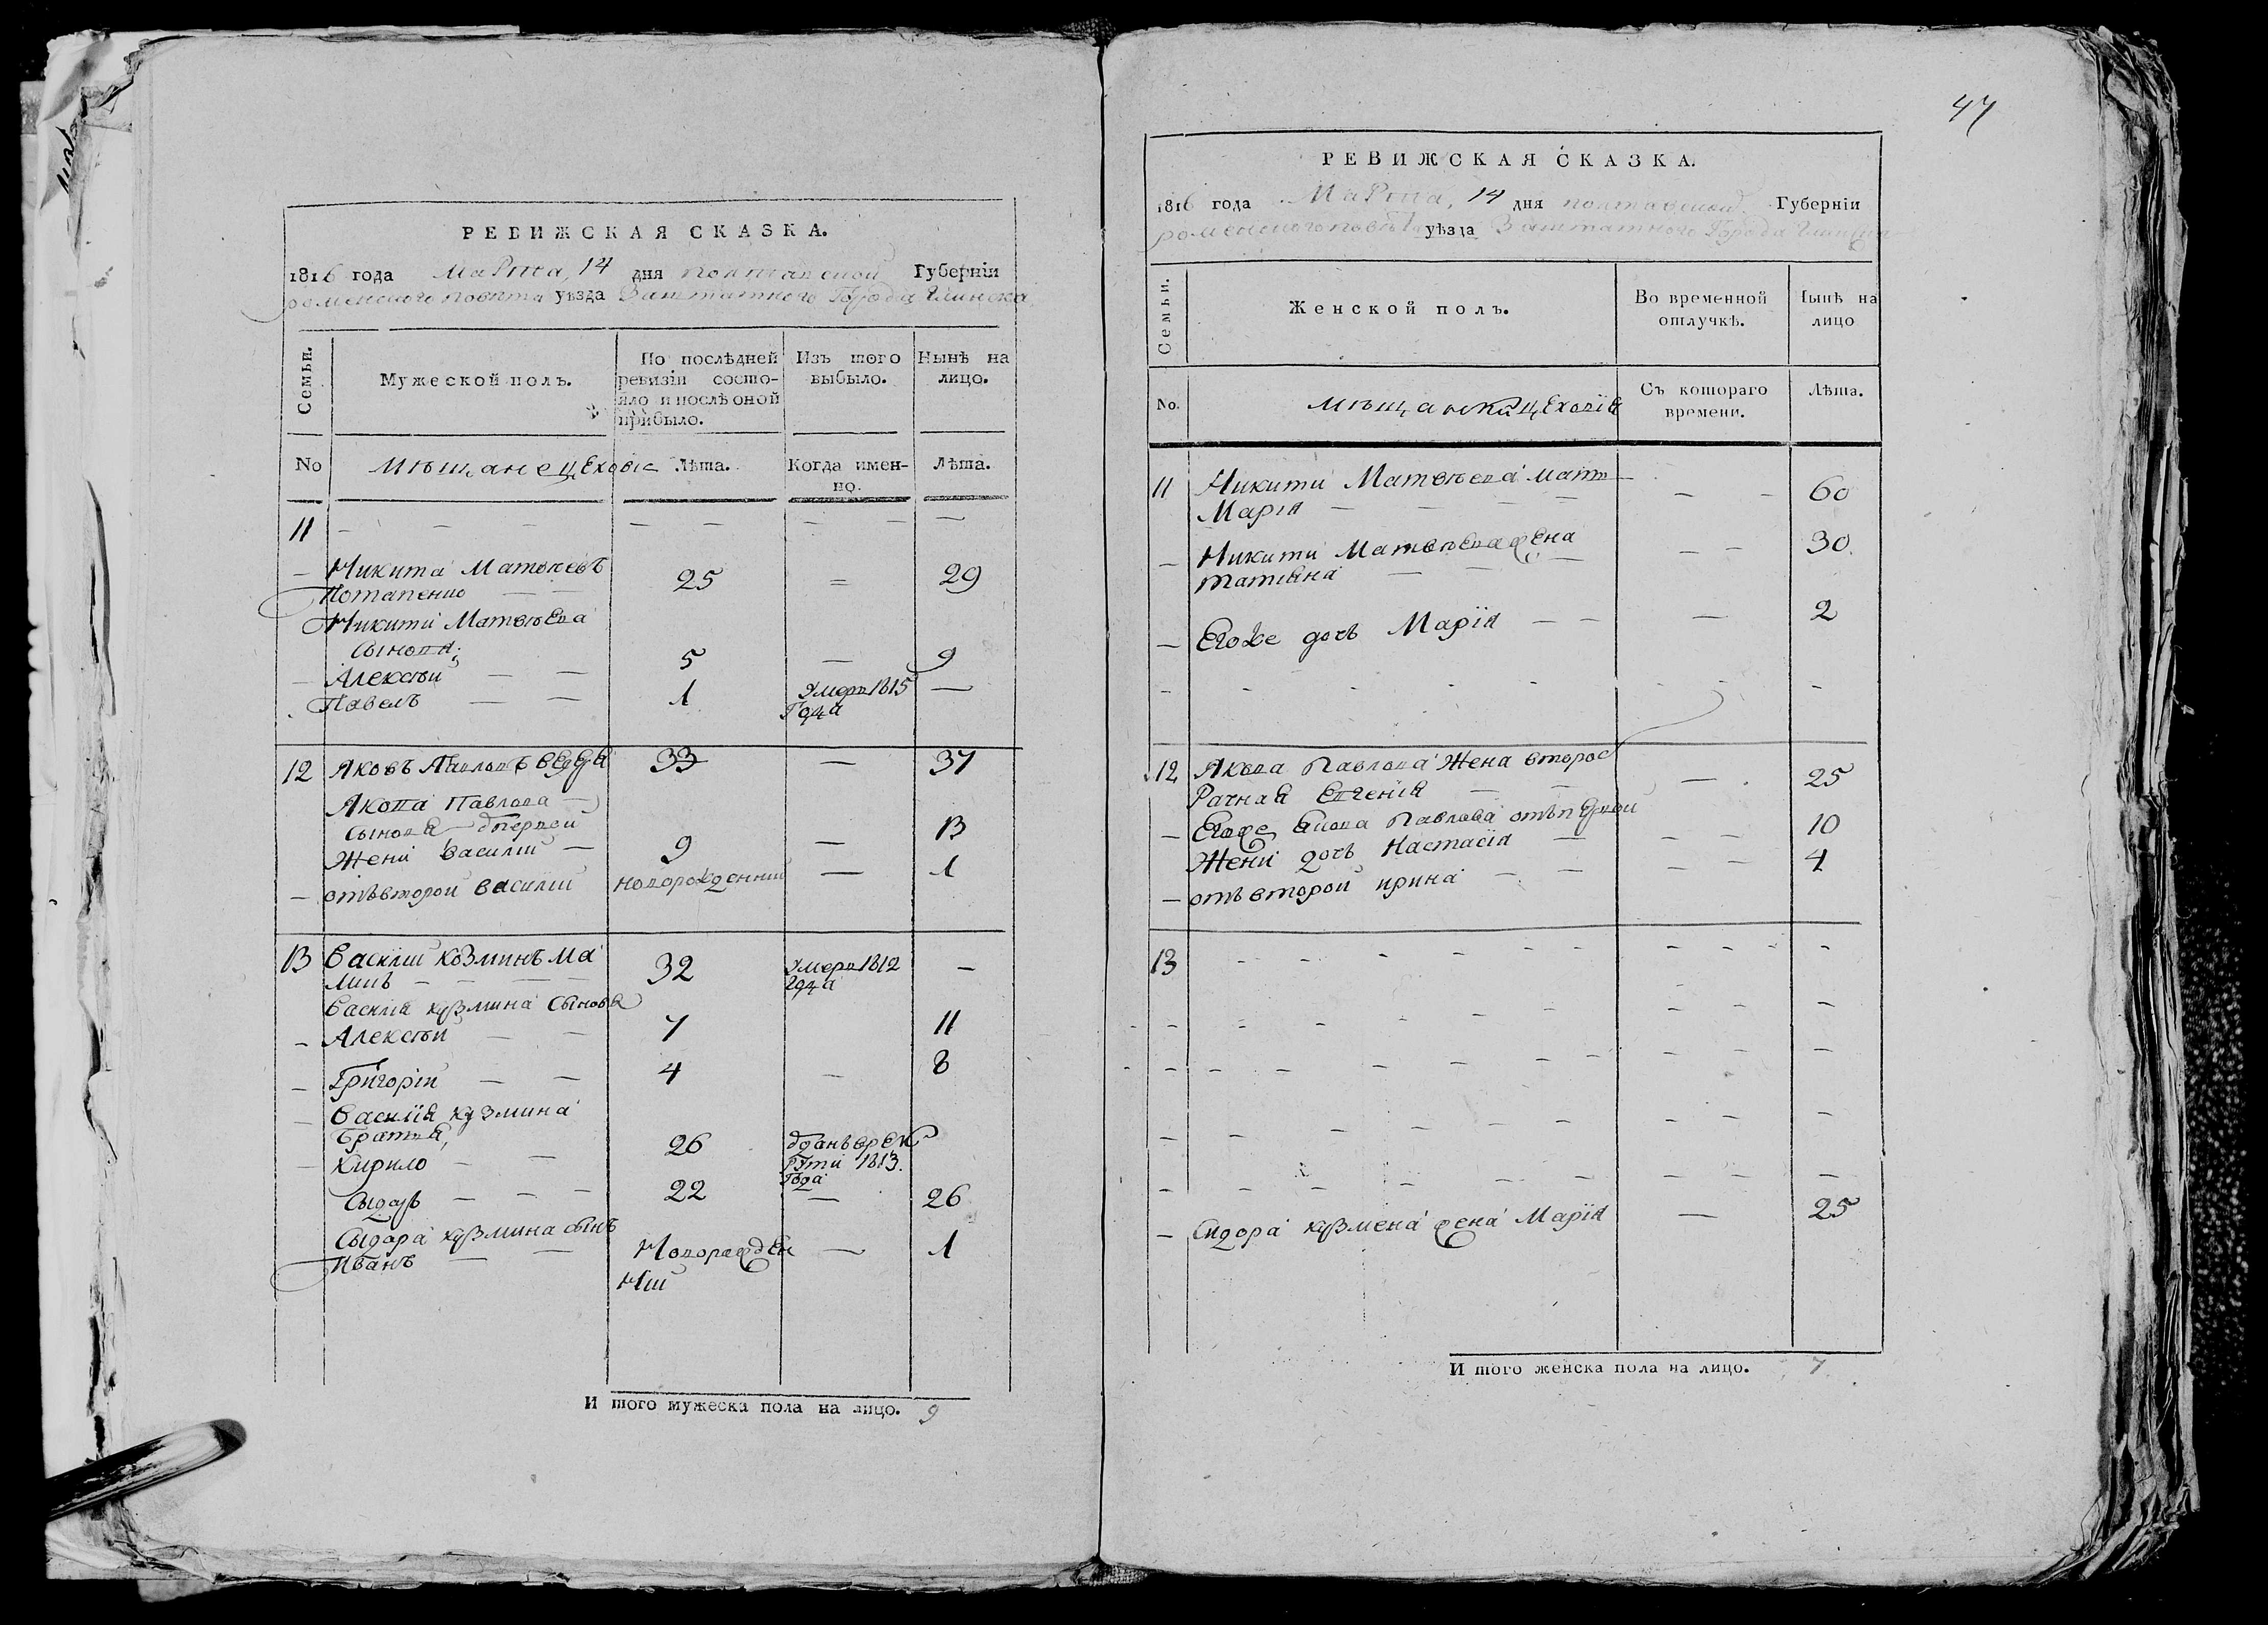 РЕВИЖСКАЯ СКАЗКА.
1816 года Марта, 14 дня полтавской Губерніи
роменского повѣта уѣзда Заштатного Города Глинска
Семьи.
Мужеской полъ.
По послѣдней ревизіи состо-
яло и послѣ оной
прибыло.
Изъ того
выбыло.
Нынѣ на
лицо.
No
Мѣщане цеховіе
Лѣта.
Когда имен-
но.
Лѣта.
11
Никита Матвѣевъ
Потапенко 25 29
Никити Матвѣева
Сыновя;
Алексѣй 5 9
Павелъ 1 Умеръ 1815
Года
12 Яковъ Павловъ 33 37
Якова Павлова
Сыновя
Жени Василій 9 13
отъ второй Василій новорожденній 1
13 Василій Козминъ Ма
32 Умеръ 1812
года
Василія Кузмина Сыновя
Алексѣй 7 11
Григорій 4 8
Василія Кузмина
Братья,
Кирило 26 Рекрути 1813.
Года
Сыдоръ 22 26
Сыдора Кузмина сынъ
Иванъ Новорожден
ній 1
И того мужеска пола на лицо. 9
47
РЕВИЖСКАЯ СКАЗКА.
1816 года Марта, 14 дня полтавской Губерніи
роменского повѣта уѣзда Заштатного Города Глинска
Семьи.
Женской полъ.
Во временной
отлучкѣ.
Нынѣ на
лицо
No.
Мѣщански цеховія
Съ котораго
времени.
Лѣта.
11 Никити Матвѣева мать
Марія 60
Никити Матвѣева жена
татіяна 30.
Егоже дочь Марія 2
12 Якова Павлова Жена второб
рачная Евгенія 25
Егоже Якова Павлова отъ первой
Жени дочь Настасія 10
отъ второй ирина 4
13
Сидора Кузмена жена Марія 25
И того женска пола на лицо. 7